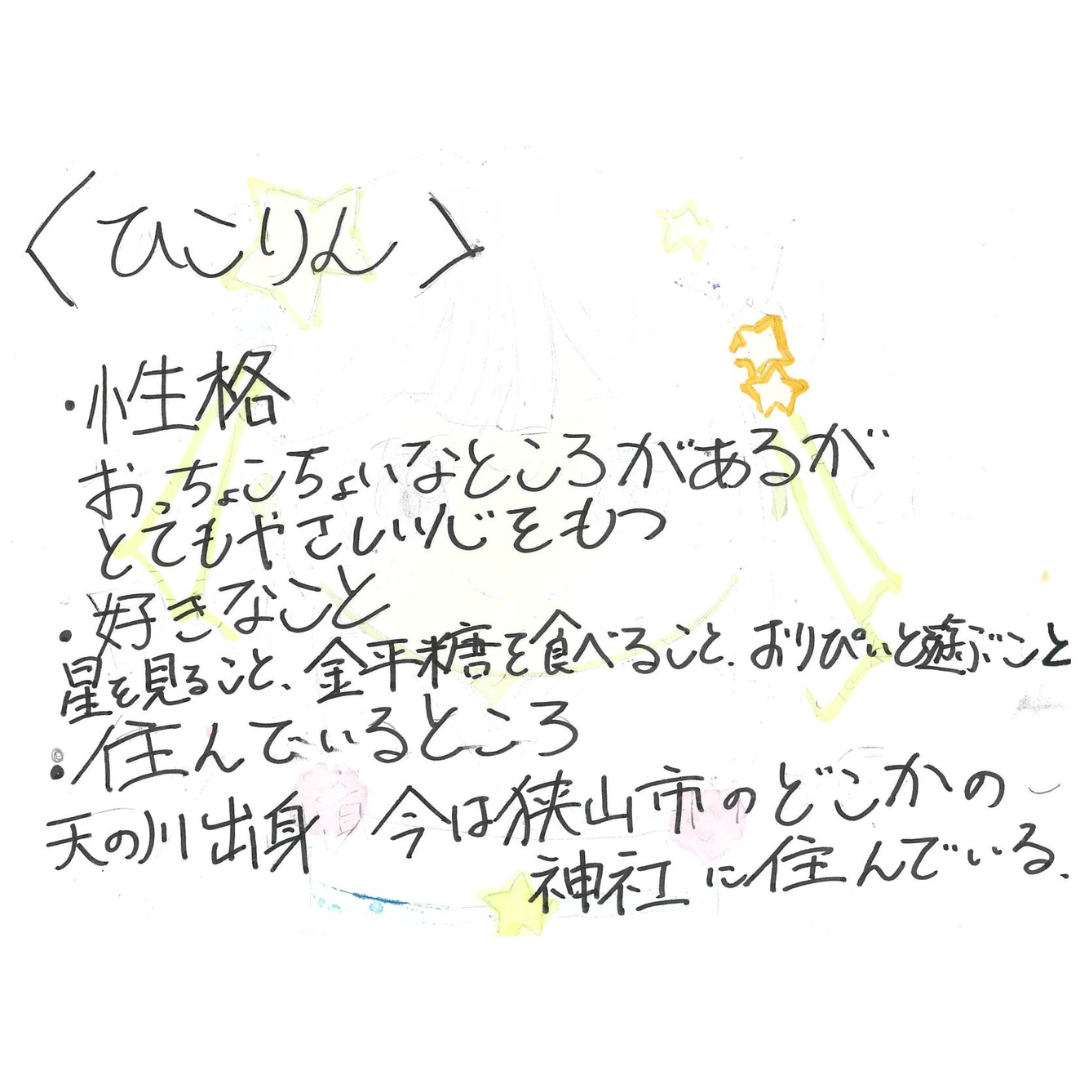 〈ひこりん〉
・性格
おっちょこちょいなところがあるが
とてもやさしい心をもつ
・好きなこと
星を見ること、金平糖を食べること、おりぴぃと遊ぶこと
・住んでいるところ
天の川出身 今は狭山市のどこかの
神社に住んでいる、